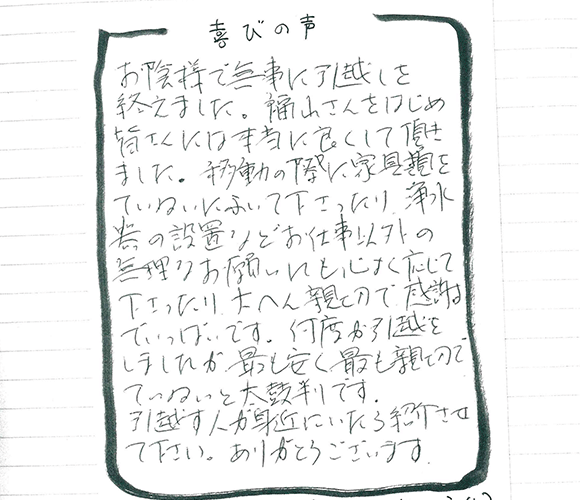 喜びの声
お陰様で無事に引越しを
終えました。福山さんをはじめ
皆さんには本当に良くして頂き
ました。移動の際に家具類を
ていねいにふいて下さったり 浄水
器の設置などお仕事以外の
無理なお願いにも心よく応じて
下さったり 大へん親切で 感謝
でいっぱいです。何度か引越を
しましたが 最も安く最も親切で
ていねいと太鼓判です。
引越す人が身近にいたら紹介させ
て下さい。ありがとうございます。